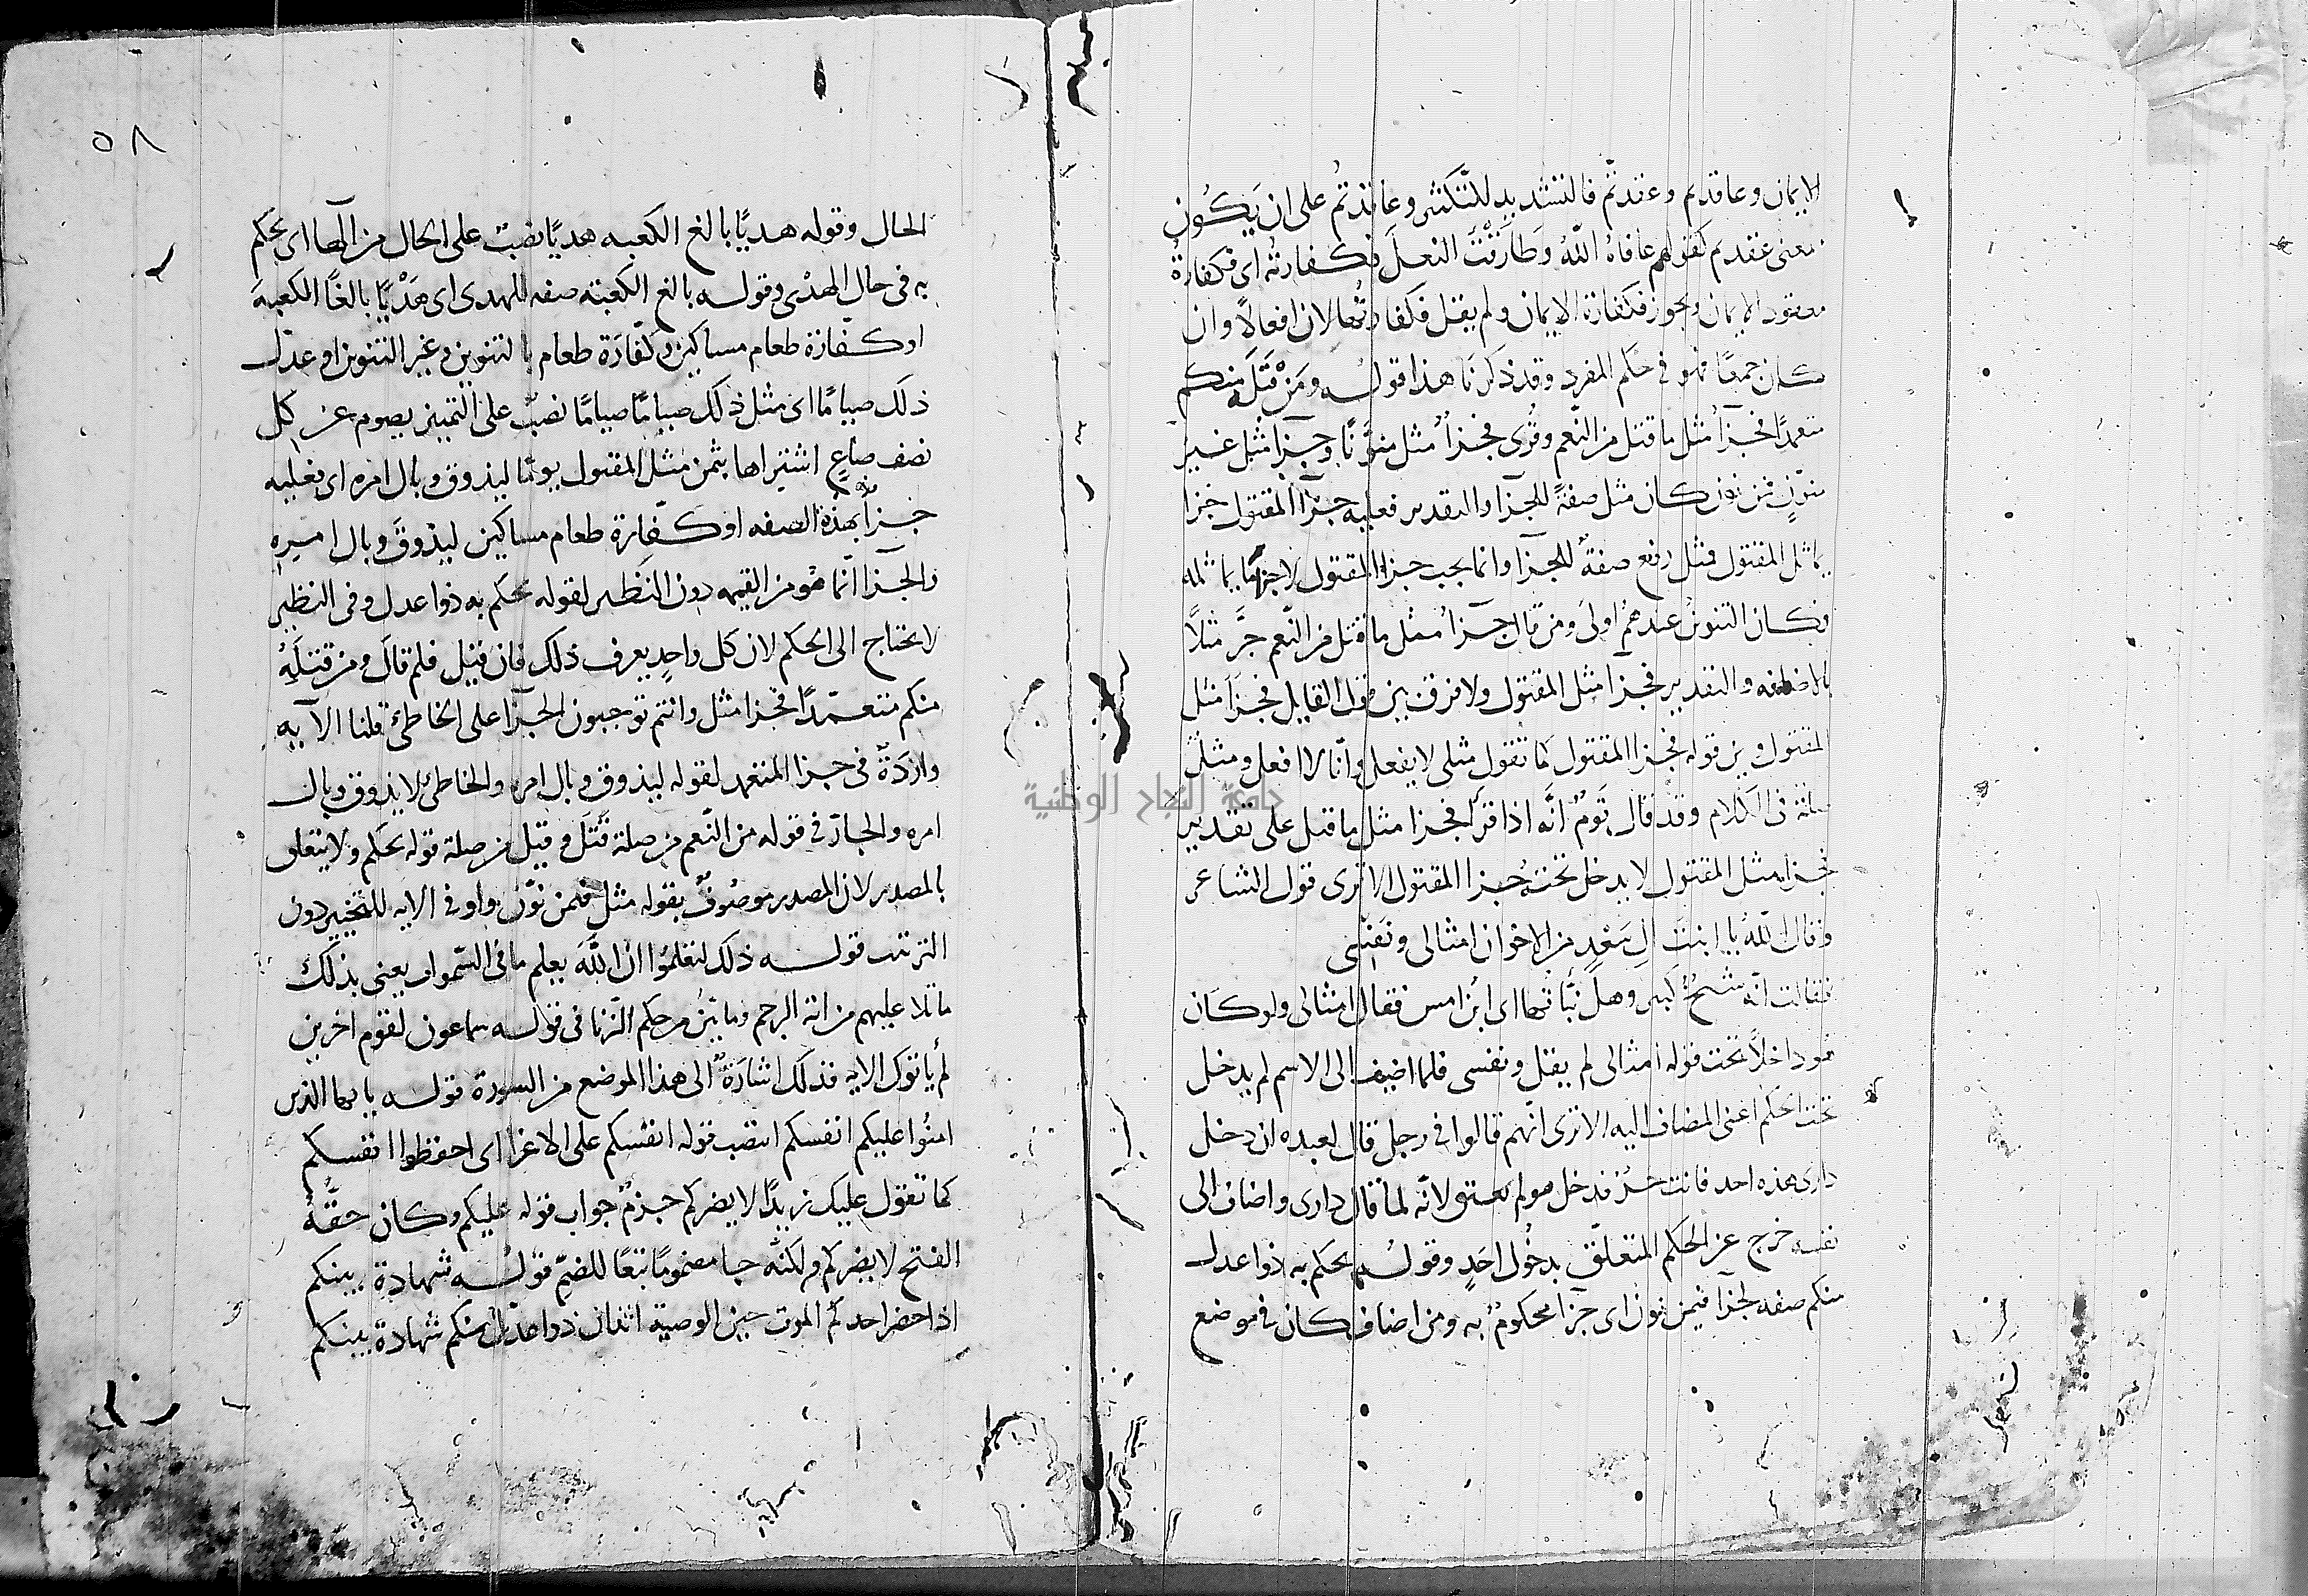 الايمان وعاقدتم وعقدتم فالتشديد للتكثير وعاقدتم على ان يكون
بمعنى عقدتم كقولهم عافاه الله وطارقت النعل فكفارته اى فكفارة
معقود الايمان ويجوز فكفارة الايمان ولم يقل فكفارتها لان افعالا وان
كان جمعا فهو فى حكم المفرد وقد ذكرنا هذا قوله ومن قتله منكم
متعمدا فجزآ مثل ما قتل من النعم وقرى فجزآ مثل منونا وجزآ مثل غير
منون فمن نون كان مثل صفة للجزا والتقدير فعليه جزآ المقتول جزا
يماثل المقتول فمثل رفع صفة للجزا وانما يجب جزا المقتول لا جزا ما يماثله
فكان التنوين عندهم اولى ومن قال جزآ مثل ما قتل من النعم جر مثلا
بالاضافه والتقدير فجزا مثل المقتول ولا فرق بين قول القايل فجزآ مثل
المقتول وبين قوله فجزا المقتول كما تقول مثلى لا يفعل وانا لا افعل ومثل
صلة فى الكلام وقد قال قوم انه اذا قرا فجزا مثل ما قتل على تقدير
فجزا مثل المقتول لا يدخل تحته جزا المقتول الا ترى قول الشاعر
وقال الله يا ابنت ال سعد من الاخوان امثالى ونفسى
فقالت انه شيخ كبير وهل نبأتها انى ابن امس فقال امثالى ولو كان
هو داخلا تحت قوله امثالى لم يقل ونفسى فلما اضيف الى الاسم لم يدخل
تحت الحكم اعنى المضاف اليه الا ترى انهم قالوا فى رجل قال لعبده ان دخل
دارى هذه احد فانت حر فدخل هو لم يعتق لانه لما قال دارى واضاف الى
نفسه خرج عن الحكم المتعلق بدخول احد وقوله يحكم به ذوا عدل
منكم صفه لجزآ فيمن نون اى جزآ محكوم به ومن اضاف كان فى موضع
٥٨
الحال وقوله هديا بالغ الكعبه هديا نصب على الحال من الها اى يحكم
به فى حال الهدى وقوله بالغ الكعبة صفه للهدى اى هديا بالغا الكعبة
او كفارة طعام مساكين وكفارة طعام بالتنوين وغير التنوين او عدل
ذلك صياما اى مثل ذلك صياما صياما نصب على التمييز يصوم عن كل
نصف صاع اشتراها بثمن مثل المقتول يوما ليذوق وبال امره اى فعليه
جزآ بهذه الصفه او كفارة طعام مساكين ليذوق وبال امره
والجزآ انما هو من القيمه دون النظير لقوله يحكم به ذوا عدل وفى النظير
لا يحتاج الى الحكم لان كل واحد يعرف ذلك فان قيل فلم قال ومن قتله
منكم متعمدا فجزا مثل وانتم توجبون الجزآ على الخاطئ قلنا الآيه
واردة فى جزا المتعمد لقوله ليذوق وبال امره والخاطئ لا يذوق وبال
امره والجار فى قوله من النعم من صلة قتل وقيل من صلة قوله يحكم ولا يتعلق
بالمصدر لان المصدر موصوف بقوله مثل فيمن نون واو فى الايه للتخيير دون
الترتيب قوله ذلك لتعلموا ان الله يعلم ما فى السموات يعنى بذلك
ما تلا عليهم من اية الرجم وما بين من حكم الزنا فى قوله سماعون لقوم اخرين
لم يأتوك الايه فذلك اشارة الى هذا الموضع من السورة قوله يا يها الذين
امنوا عليكم انفسكم انتصب قوله انفسكم على الاغرا اى احفظوا انفسكم
كما تقول عليك زيدا لا يضركم جزم جواب قوله عليكم وكان حقه
الفتح لا يضركم ولكنه جا مضموما تبعا للضم قوله شهادة بينكم
اذا حضر احدكم الموت حين الوصية اثنان ذوا عدل منكم شهادة بينكم
جامعة النجاح الوطنية